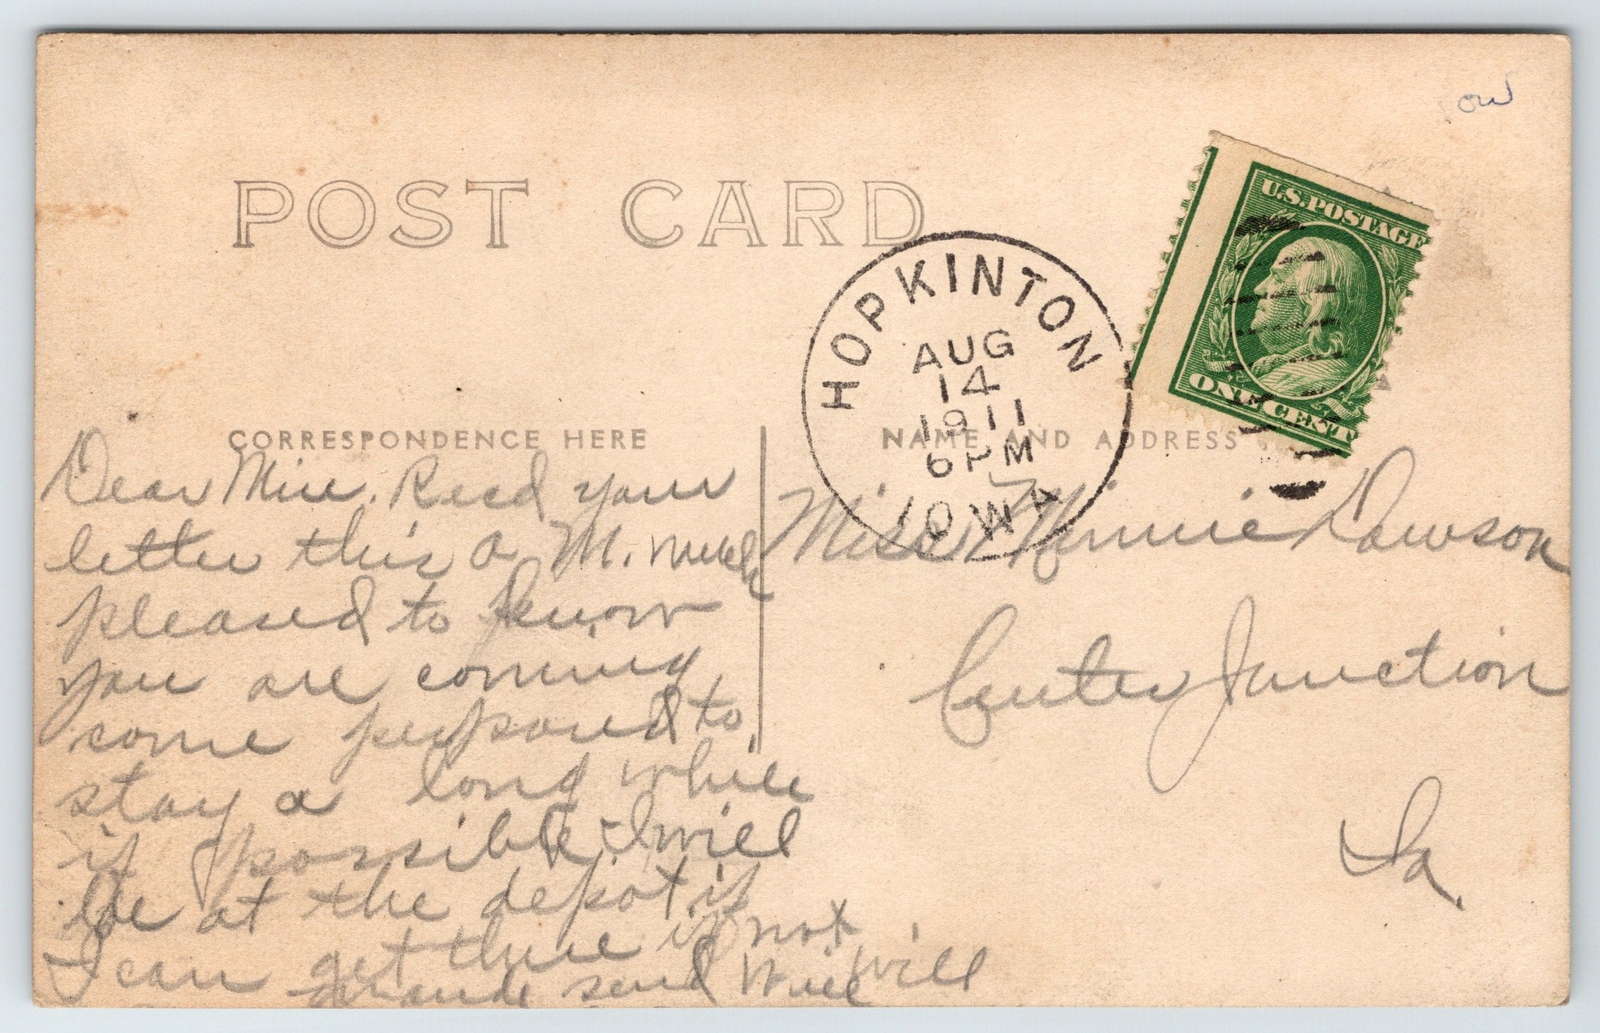 ow
POST CARD
U.S. POSTAGE
ONE CENT
HOPKINTON
AUG
14
1911
6 PM
IOWA
CORRESPONDENCE HERE
NAME AND ADDRESS
Dear Min. Recd your
letter this a M. much
pleased to know
you are coming
come prepared to
stay a long while
if possible I will
be at the depot if
I can get there if not
send will
Miss Minnie Dawson
Center Junction
Ia.